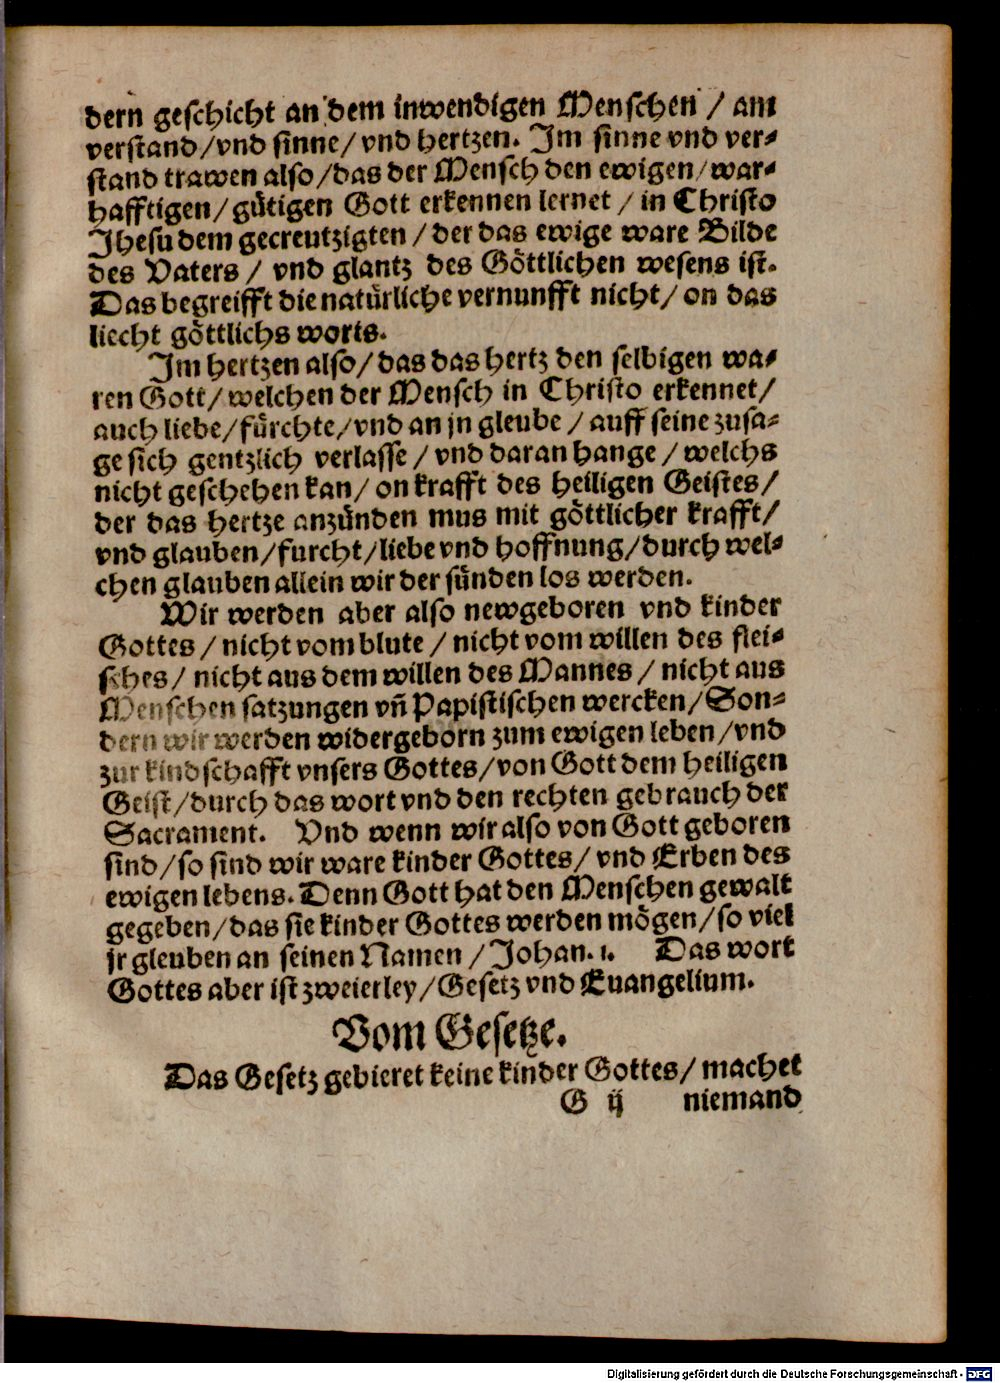 dern geschicht an dem inwendigen Menschen / am
verstand/vnd sinne/ vnd hertzen. Im sinne vnd ver⸗
stand trawen also/das der Mensch den ewigen/war⸗
hafftigen/gütigen Gott erkennen lernet / in Christo
Jhesu dem gecreutzigten / der das ewige ware Bilde
des Vaters / vnd glantz des Göttlichen wesens ist.
Das begreifft die natürliche vernunfft nicht/ on das
liecht göttlichs worts.
Im hertzen also/das das hertz den selbigen wa⸗
ren Gott/welchen der Mensch in Christo erkennet/
auch liebe/fürchte/vnd an jn gleube / auff seine zusa⸗
ge sich gentzlich verlasse / vnd daran hange / welchs
nicht geschehen kan/ on krafft des heiligen Geistes/
der das hertze anzünden mus mit göttlicher krafft/
vnd glauben/furcht/liebe vnd hoffnung/durch wel⸗
chen glauben allein wir der sünden los werden.
Wir werden aber also newgeboren vnd kinder
Gottes / nicht vom blute / nicht vom willen des flei⸗
sches / nicht aus dem willen des Mannes / nicht aus
Menschen satzungen vñ Papistischen wercken/Son⸗
dern wir werden widergeborn zum ewigen leben/vnd
zur kindschafft vnsers Gottes/von Gott dem heiligen
Geist/durch das wort vnd den rechten gebrauch der
Sacrament. Vnd wenn wir also von Gott geboren
sind/so sind wir ware kinder Gottes/ vnd Erben des
ewigen lebens. Denn Gott hat den Menschen gewalt
gegeben/das sie kinder Gottes werden mögen/so viel
jr gleuben an seinen Namen / Johan. 1. Das wort
Gottes aber ist zweierley/Gesetz vnd Euangelium.
Vom Gesetze.
Das Gesetz gebieret keine kinder Gottes/ machet
G ij niemand
Digitalisierung gefördert durch die Deutsche Forschungsgemeinschaft - DFG